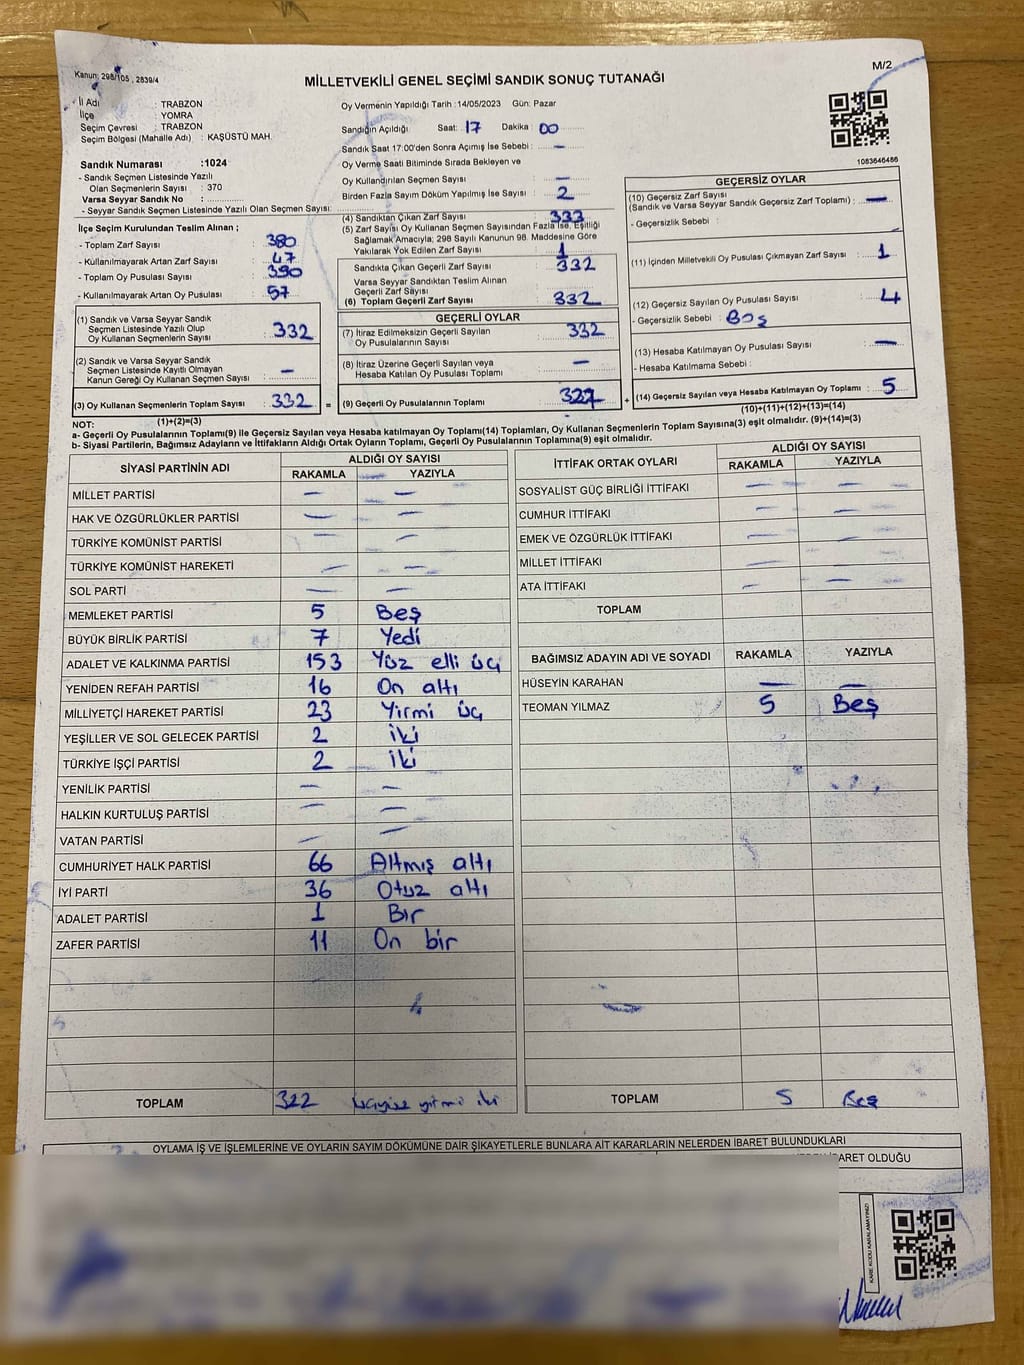 M/2
Kanun: 298/105 , 2839/4
MİLLETVEKİLİ GENEL SEÇİMİ SANDIK SONUÇ TUTANAĞI
İl Adı : TRABZON
İlçe : YOMRA
Seçim Çevresi : TRABZON
Seçim Bölgesi (Mahalle Adı) : KAŞÜSTÜ MAH.
Sandık Numarası :1024
- Sandık Seçmen Listesinde Yazılı
Olan Seçmenlerin Sayısı : 370
Varsa Seyyar Sandık No :
- Seyyar Sandık Seçmen Listesinde Yazılı Olan Seçmen Sayısı:
İlçe Seçim Kurulundan Teslim Alınan ;
- Toplam Zarf Sayısı : 380
- Kullanılmayarak Artan Zarf Sayısı : 47
- Toplam Oy Pusulası Sayısı : 390
- Kullanılmayarak Artan Oy Pusulası : 57
(1) Sandık ve Varsa Seyyar Sandık
Seçmen Listesinde Yazılı Olup
Oy Kullanan Seçmenlerin Sayısı : 332
(2) Sandık ve Varsa Seyyar Sandık
Seçmen Listesinde Kayıtlı Olmayan
Kanun Gereği Oy Kullanan Seçmen Sayısı : –
(3) Oy Kullanan Seçmenlerin Toplam Sayısı : 332 =
(1)+(2)=(3)
Oy Vermenin Yapıldığı Tarih :14/05/2023 Gün: Pazar
Sandığın Açıldığı Saat: 17 Dakika 00
Sandık Saat 17:00'den Sonra Açımış İse Sebebi : –
Oy Verme Saati Bitiminde Sırada Bekleyen ve
Oy Kullandırılan Seçmen Sayısı : –
Birden Fazla Sayım Döküm Yapılmış İse Sayısı : 2
(4) Sandıktan Çıkan Zarf Sayısı : 333
(5) Zarf Sayısı Oy Kullanan Seçmen Sayısından Fazla İse, Eşitliği
Sağlamak Amacıyla; 298 Sayılı Kanunun 98. Maddesine Göre
Yakılarak Yok Edilen Zarf Sayısı : 1
Sandıkta Çıkan Geçerli Zarf Sayısı : 332
Varsa Seyyar Sandıktan Teslim Alınan
Geçerli Zarf Sayısı :
(6) Toplam Geçerli Zarf Sayısı : 332
GEÇERLİ OYLAR
(7) İtiraz Edilmeksizin Geçerli Sayılan
Oy Pusulalarının Sayısı : 332
(8) İtiraz Üzerine Geçerli Sayılan veya
Hesaba Katılan Oy Pusulası Toplamı : –
(9) Geçerli Oy Pusulalarının Toplamı : 327 +
1083646486
GEÇERSİZ OYLAR
(10) Geçersiz Zarf Sayısı
(Sandık ve Varsa Seyyar Sandık Geçersiz Zarf Toplamı) : –
- Geçersizlik Sebebi :
(11) İçinden Milletvekili Oy Pusulası Çıkmayan Zarf Sayısı : 1
(12) Geçersiz Sayılan Oy Pusulası Sayısı : 4
- Geçersizlik Sebebi : Boş
(13) Hesaba Katılmayan Oy Pusulası Sayısı : –
- Hesaba Katılmama Sebebi :
(14) Geçersiz Sayılan veya Hesaba Katılmayan Oy Toplamı : 5
(10)+(11)+(12)+(13)=(14)
NOT:
a- Geçerli Oy Pusulalarının Toplamı(9) ile Geçersiz Sayılan veya Hesaba katılmayan Oy Toplamı(14) Toplamları, Oy Kullanan Seçmenlerin Toplam Sayısına(3) eşit olmalıdır. (9)+(14)=(3)
b- Siyasi Partilerin, Bağımsız Adayların ve İttifakların Aldığı Ortak Oyların Toplamı, Geçerli Oy Pusulalarının Toplamına(9) eşit olmalıdır.
SİYASİ PARTİNİN ADI ALDIĞI OY SAYISI
RAKAMLA YAZIYLA
MİLLET PARTİSİ – –
HAK VE ÖZGÜRLÜKLER PARTİSİ – –
TÜRKİYE KOMÜNİST PARTİSİ – –
TÜRKİYE KOMÜNİST HAREKETİ – –
SOL PARTİ – –
MEMLEKET PARTİSİ 5 Beş
BÜYÜK BİRLİK PARTİSİ 7 Yedi
ADALET VE KALKINMA PARTİSİ 153 Yüz elli üç
YENİDEN REFAH PARTİSİ 16 On altı
MİLLİYETÇİ HAREKET PARTİSİ 23 Yirmi üç
YEŞİLLER VE SOL GELECEK PARTİSİ 2 iki
TÜRKİYE İŞÇİ PARTİSİ 2 iki
YENİLİK PARTİSİ – –
HALKIN KURTULUŞ PARTİSİ – –
VATAN PARTİSİ – –
CUMHURİYET HALK PARTİSİ 66 Altmış altı
İYİ PARTİ 36 Otuz altı
ADALET PARTİSİ 1 Bir
ZAFER PARTİSİ 11 On bir
TOPLAM 322 üçyüz yirmi iki
İTTİFAK ORTAK OYLARI ALDIĞI OY SAYISI
RAKAMLA YAZIYLA
SOSYALİST GÜÇ BİRLİĞİ İTTİFAKI – –
CUMHUR İTTİFAKI – –
EMEK VE ÖZGÜRLÜK İTTİFAKI – –
MİLLET İTTİFAKI – –
ATA İTTİFAKI – –
TOPLAM
BAĞIMSIZ ADAYIN ADI VE SOYADI RAKAMLA YAZIYLA
HÜSEYİN KARAHAN – –
TEOMAN YILMAZ 5 Beş
TOPLAM 5 Beş
OYLAMA İŞ VE İŞLEMLERİNE VE OYLARIN SAYIM DÖKÜMÜNE DAİR ŞİKAYETLERLE BUNLARA AİT KARARLARIN NELERDEN İBARET BULUNDUKLARI
İBARET OLDUĞU
KARE KODU KARALAMAYINIZ!